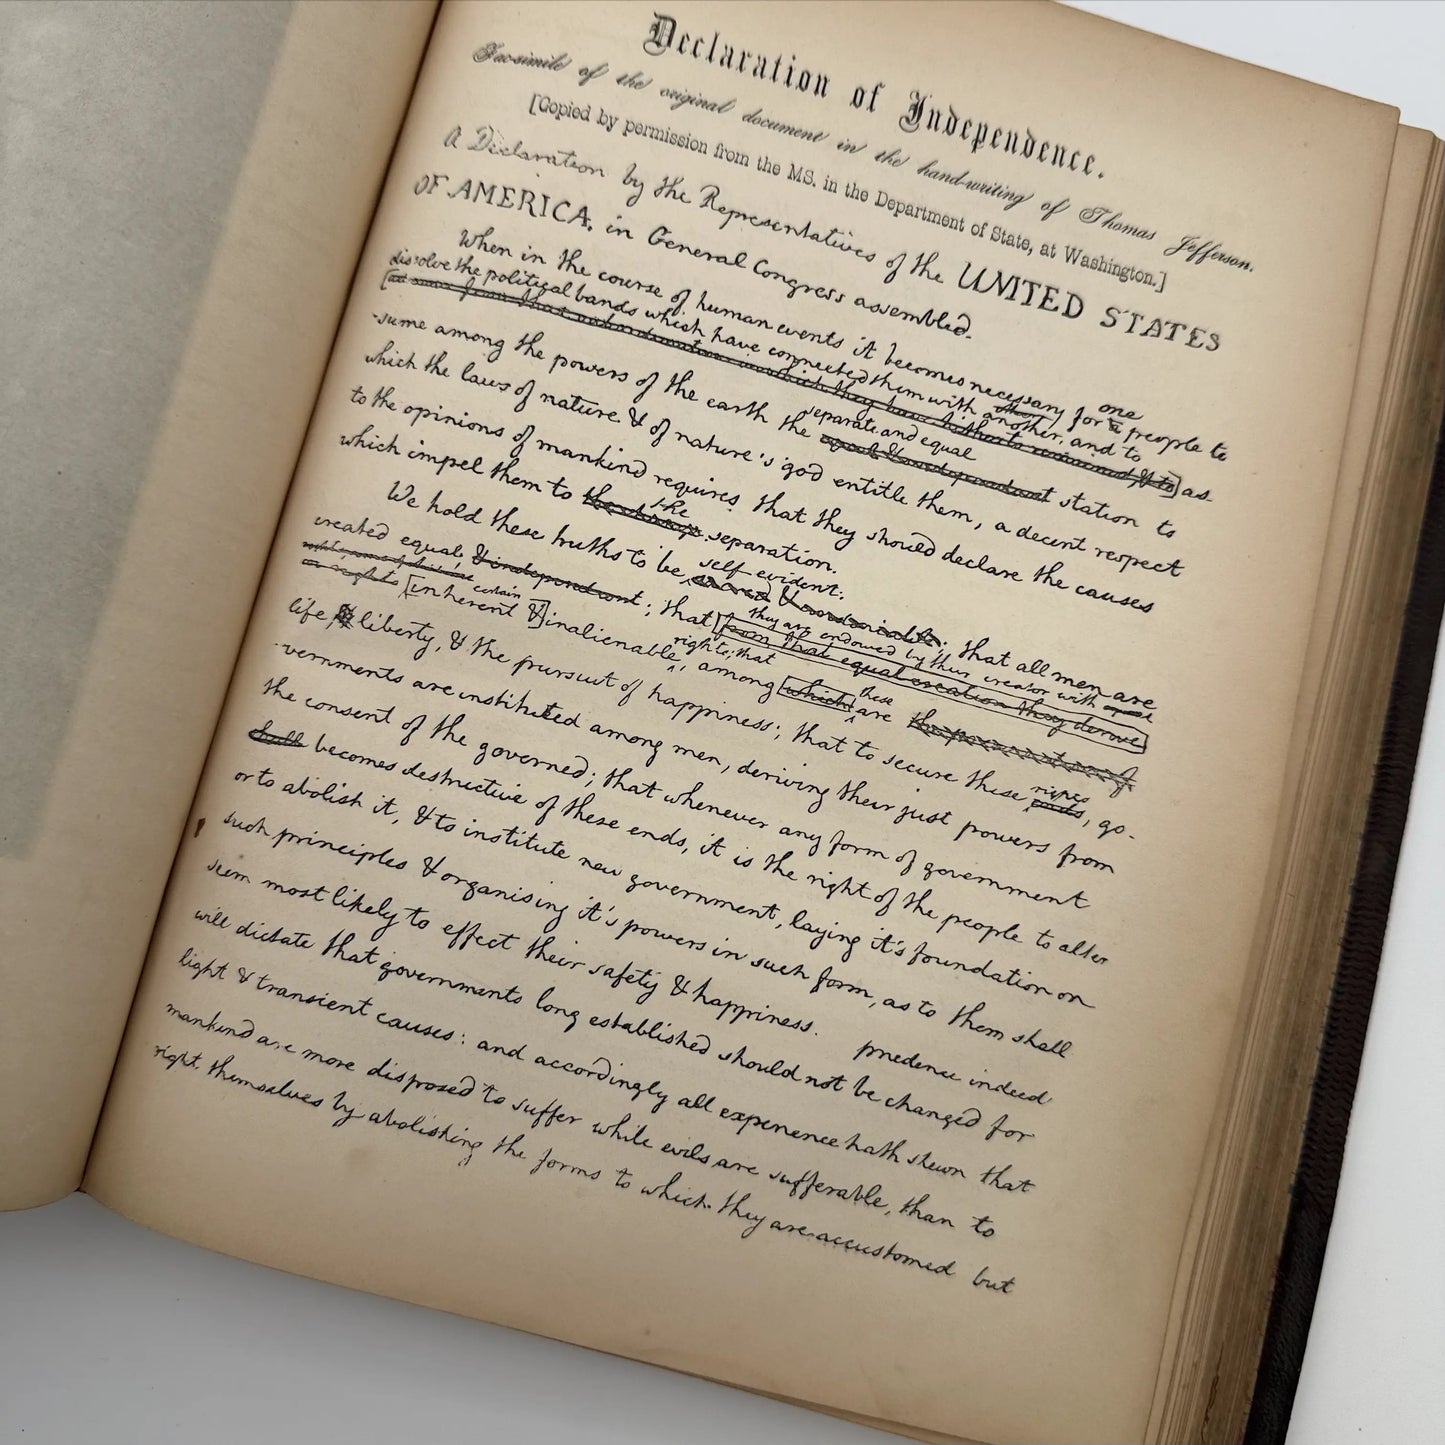 Declaration of Independence.
Fac-simile of the original document in the hand-writing of Thomas Jefferson.
[Copied by permission from the MS. in the Department of State, at Washington.]
A Declaration by the Representatives of the UNITED STATES
OF AMERICA, in General Congress assembled.
When in the course of human events it becomes necessary for a one people to
dissolve the political bands which have connected them with another, and to
[advance from that subordination in which they have hitherto remained, & to] as
-sume among the powers of the earth the separate and equal equal & independent station to
which the laws of nature & of nature's god entitle them, a decent respect
to the opinions of mankind requires that they should declare the causes
which impel them to the change the separation.
We hold these truths to be sacred & undeniable self evident; that all men are
created equal & independent; that from that equal creation they derive they are endowed by their creator with
rights, some of which are
certain
or rights [inherent &] inalienable rights; that, among which these are the preservation of
life, & liberty, & the pursuit of happiness; that to secure these ends rights, go-
-vernments are instituted among men, deriving their just powers from
the consent of the governed; that whenever any form of government
shall becomes destructive of these ends, it is the right of the people to alter
or to abolish it, & to institute new government, laying it's foundation on
such principles & organising it's powers in such form, as to them shall
seem most likely to effect their safety & happiness. prudence indeed
will dictate that governments long established should not be changed for
light & transient causes: and accordingly all experience hath shewn that
mankind are more disposed to suffer while evils are sufferable, than to
right themselves by abolishing the forms to which they are accustomed but